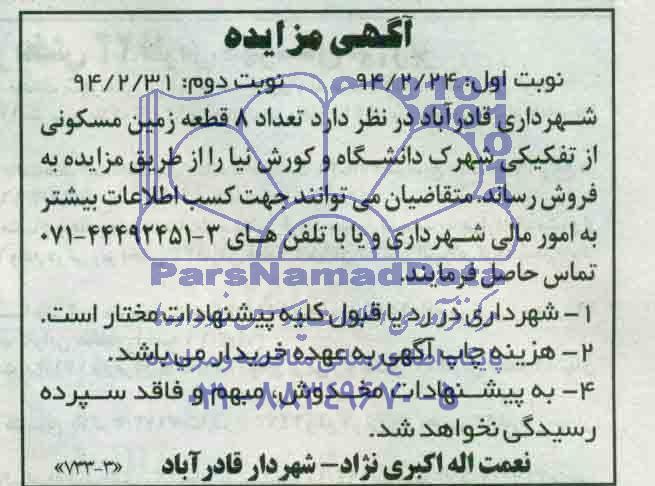 آگهی مزایده
نوبت اول: ۹۴/۲/۲۴ نوبت دوم: ۹۴/۲/۳۱
شهرداری قادرآباد در نظر دارد تعداد ۸ قطعه زمین مسکونی
از تفکیکی شهرک دانشگاه و کورش نیا را از طریق مزایده به
فروش رساند. متقاضیان می توانند جهت کسب اطلاعات بیشتر
به امور مالی شهرداری و یا با تلفن های ۳-۴۴۴۹۲۴۵۱-۰۷۱
تماس حاصل فرمایند.
ParsNamadData
۱- شهرداری در رد یا قبول کلیه پیشنهادات مختار است.
۲- هزینه چاپ آگهی به عهده خریدار می باشد.
۰۲۱-۸۸۳۴۹۶۷۰-۵
۴- به پیشنهادات مخدوش، مبهم و فاقد سپرده
رسیدگی نخواهد شد.
نعمت اله اکبری نژاد- شهردار قادرآباد «۷۳۳-۳»